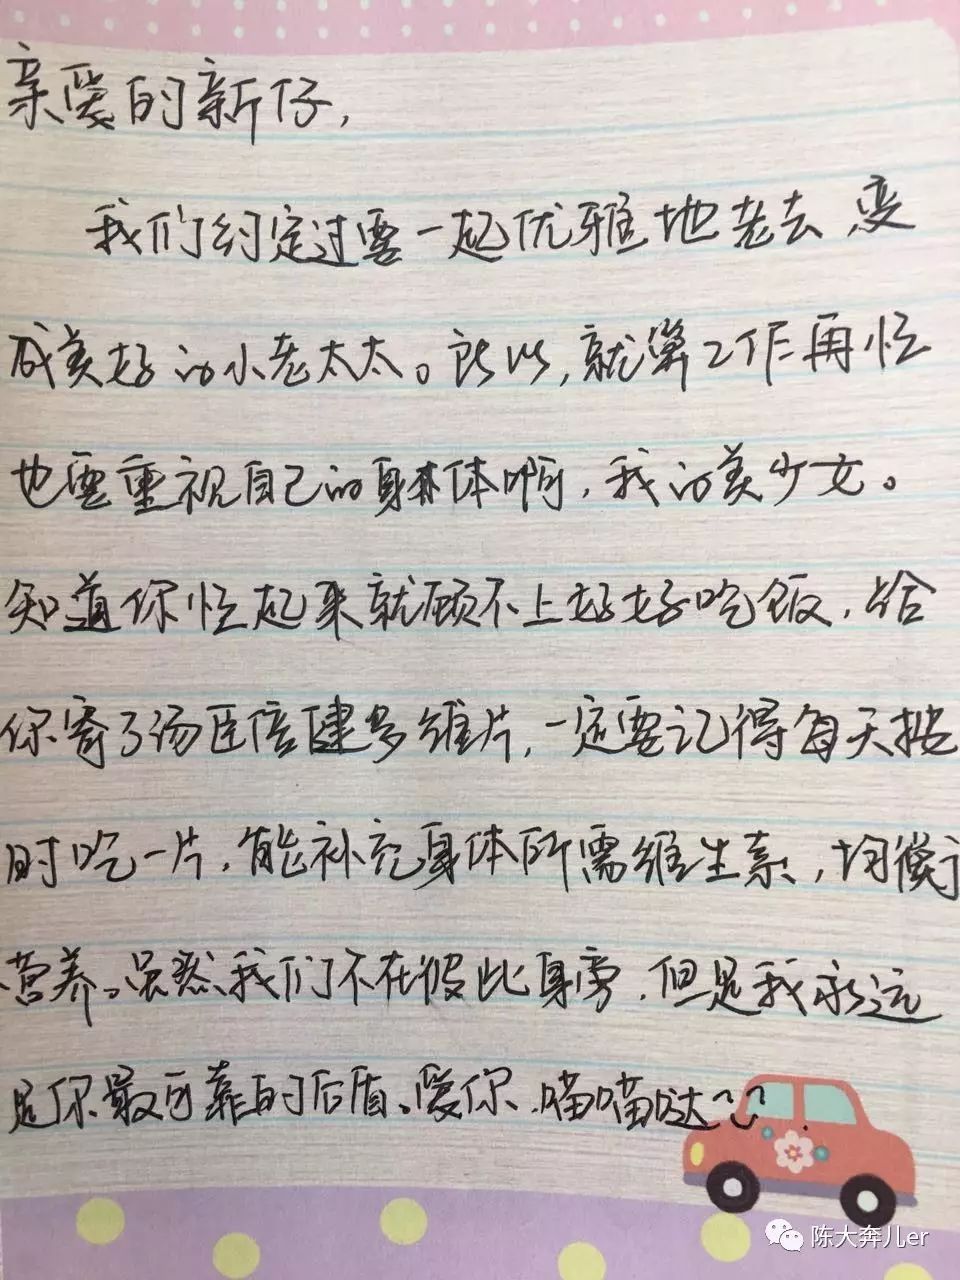 亲爱的新仔,
我们约定过要一起优雅地老去,变
成美好的小老太太。所以,就算工作再忙
也要重视自己的身体啊,我的美少女。
知道你忙起来就顾不上好好吃饭,给
你寄了汤臣倍健多维片,一定要记得每天按
时吃一片,能补充身体所需维生素,均衡
营养。虽然我们不在彼此身旁,但是我永远
是你最可靠的后盾。爱你,喵喵哒
陈大奔儿er